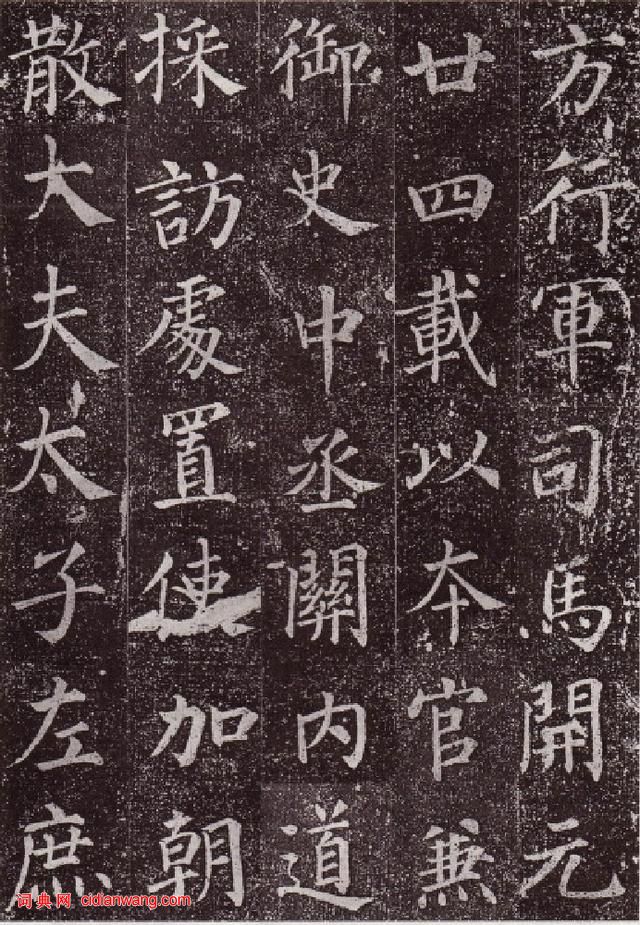 方行軍司馬開元
廿四載以本官兼
御史中丞關內道
採訪處置使加朝
散大夫太子左庶
词典网 cidianwang.com